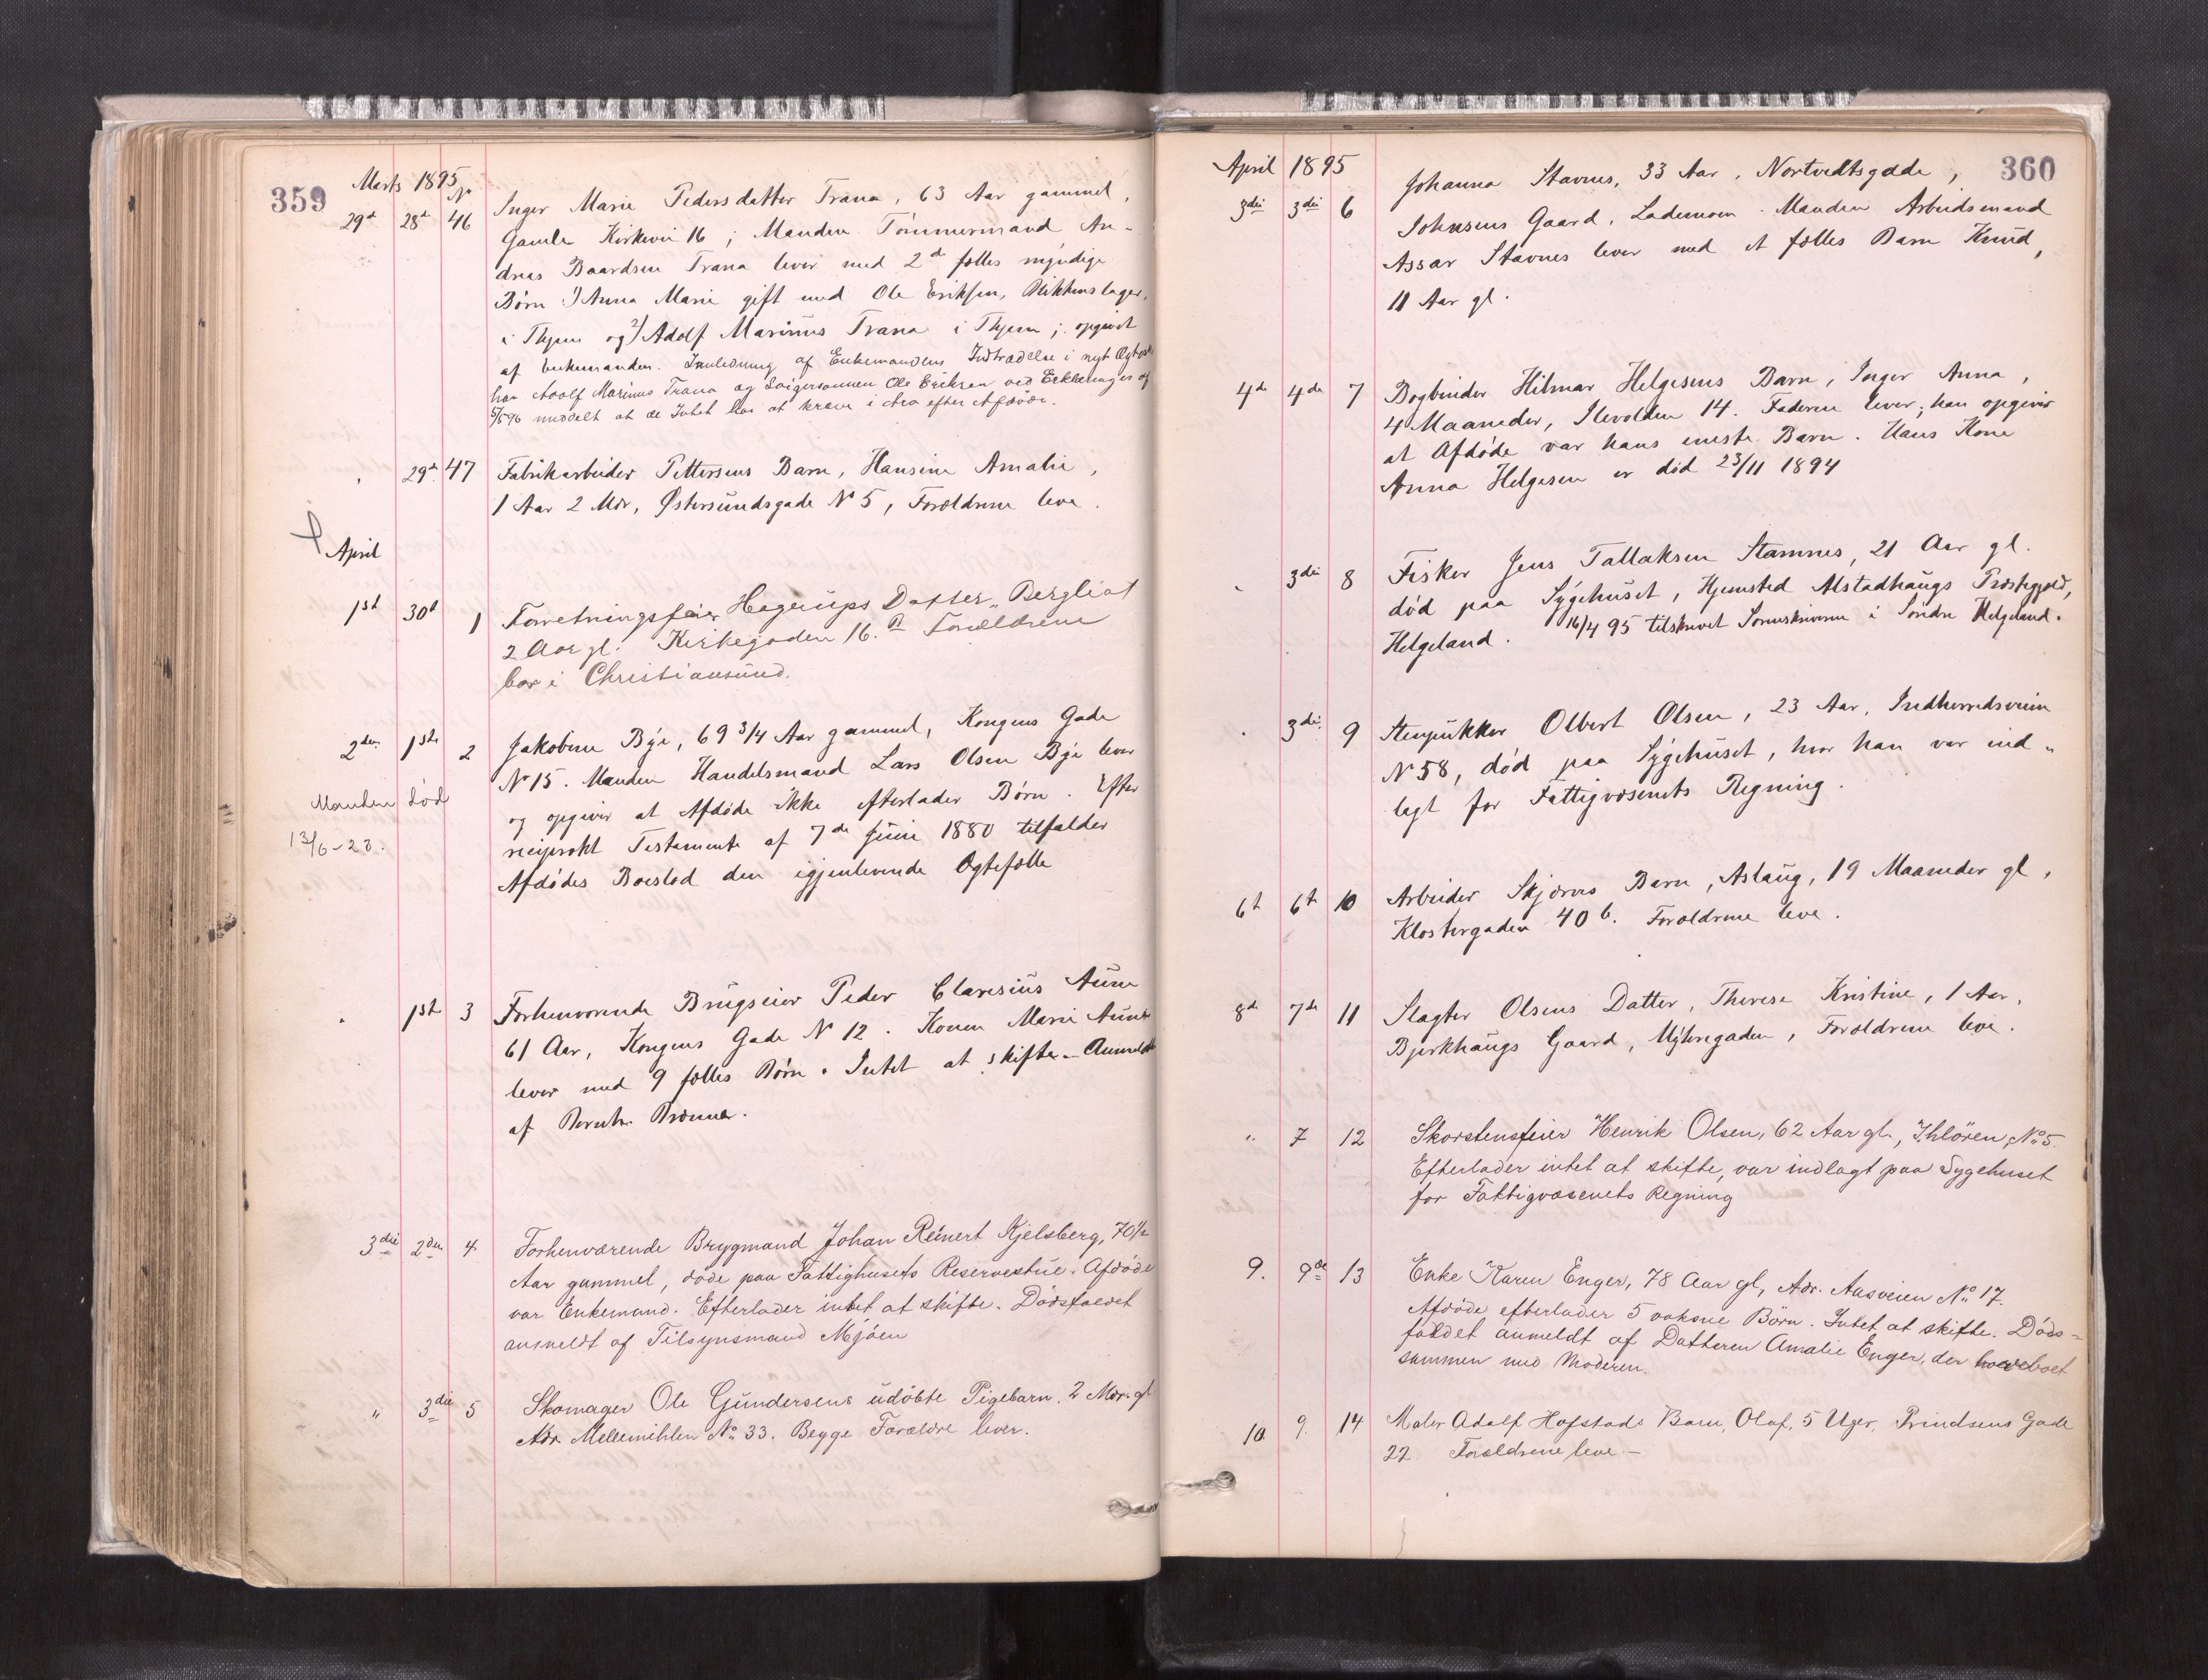 359
Marts 1895
No
29de 28de 46 Inger Marie Pedersdatter Trana, 63 Aar gammel,
Gamle Kirkevei 16; Manden Tömmermand An-
dreas Baardsen Trana lever med 2de fælles myndige
Børn 1) Anna Marie gift med Ole Eriksen, Blikkenslager,
i Thjem og 2) Adolf Marinus Trana i Thjem; opgivet
af Enkemanden. I Anledning af Enkemandens Indtrædelse i nyt Ægtesk
har Adolf Marinus Trana og Svigersønnen Ole Eriksen ved Erklæringer af
5/5 96 meddelt at de Intet har at kræve i Arv efter Afdöde.
" 29de 47 Fabrikarbeider Pettersens Barn, Hansine Amalie,
1 Aar 2 Mdr, Østersundsgade No 5, Forældrene leve.
April
1st 30d 1 Forretningsfører Hagerups Datter, Bergliot
2 Aar gl. Kirkegaden 16. B Forældrene
bor i Christiansund.
2den 1ste 2 Jakobine Bye, 69 3/4 Aar gammel, Kongens Gade
No 15. Manden Handelsmand Lars Olsen Bye lever
Manden död
og opgiver at Afdøde ikke efterlader Børn. Efter
13/6-23.
reciprokt Testamente af 7de Juni 1880 tilfalder
Afdødes Boeslod den igjenlevende Ægtefælle
" 1ste 3 Forhenværende Brugseier Peder Claresius Aune
61 Aar, Kongens Gade No 12. Konen Marie Aune
lever med 9 fælles Börn. Intet at skifte. Anmeldt
af Bernh. Brænne.
3die 2den 4 Forhenværende Brygmand Johan Reinert Kjelsberg, 70 1/2
Aar gammel, døde paa Fattighusets Reservestue. Afdøde
var Enkemand. Efterlader intet at skifte. Dødsfaldet
anmeldt af Tilsynsmand Mjöen
" 3die 5 Skomager Ole Gundersens udöbte Pigebarn. 2 Mdr. gl
Adr Mellemihlen No 33. Begge Forældre lever.
360
April 1895
3die 3die 6 Johanna Stavnes, 33 Aar, Nortvedtsgade,
Johnsens Gaard, Lademoen. Manden Arbeidsmand
Assar Stavnes lever med et fælles Barn Knud,
11 Aar gl.
4de 4de 7 Bogbinder Hilmar Helgesens Barn, Inger Anna,
4 Maaneder, Ilevolden 14. Faderen lever; han opgiver
at Afdøde var hans eneste Barn. Hans Kone
Anna Helgesen er död 23/11 1894
" 3die 8 Fisker Jens Tallaksen Stamnes, 21 Aar gl.
död paa Sygehuset, Hjemsted Alstadhaugs Præstegjeld,
Helgeland. 16/4 95 tilskrevet Sorenskriveren i Söndre Helgeland.
" 3die 9 Stenpukker Olbert Olsen, 23 Aar, Indherredsveien
No 58, död paa Sygehuset, hvor han var ind-
lagt for Fattigvæsenets Regning.
6te 6te 10 Arbeider Skjærves Barn, Aslaug, 19 Maaneder gl,
Klostergaden 40 b. Forældrene leve.
8de 7de 11 Slagter Olsens Datter, Therese Kristine, 1 Aar,
Bjerkhaugs Gaard, Myhregaden, Forældrene leve.
" 7 12 Skorstensfeier Henrik Olsen, 62 Aar gl., Ihlören No 5.
Efterlader intet at skifte, var indlagt paa Sygehuset
for Fattigvæsenets Regning
9. 9de 13 Enke Karen Enger, 78 Aar gl, Adr. Aasveien No 17.
Afdöde efterlader 5 voksne Börn. Intet at skifte. Döds=
faldet anmeldt af Datteren Amalie Enger, der boet
sammen med Moderen.
10 9. 14 Maler Adolf Hofstads Barn, Olaf, 5 Uger, Prindsens Gade
22. Forældrene leve.—